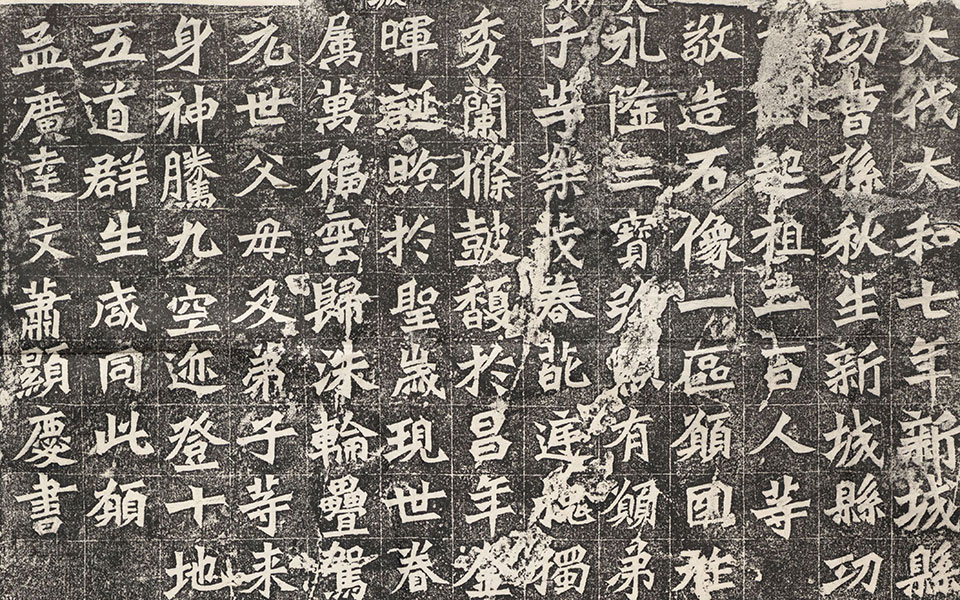 大伐大和七年新城縣
功曹孫秋生新城縣功
起祖二百人等
敬造石像一區願國祚
永隆三寶彌顯有願弟
子等榮茂春葩庭槐獨
秀蘭條鼓馥於昌年金
暉誕照於聖歲現世眷
屬萬福雲歸洙輪疊駕
元世父母及弟子等來
身神騰九空迹登十地
五道群生咸同此願
孟廣達文蕭顯慶書